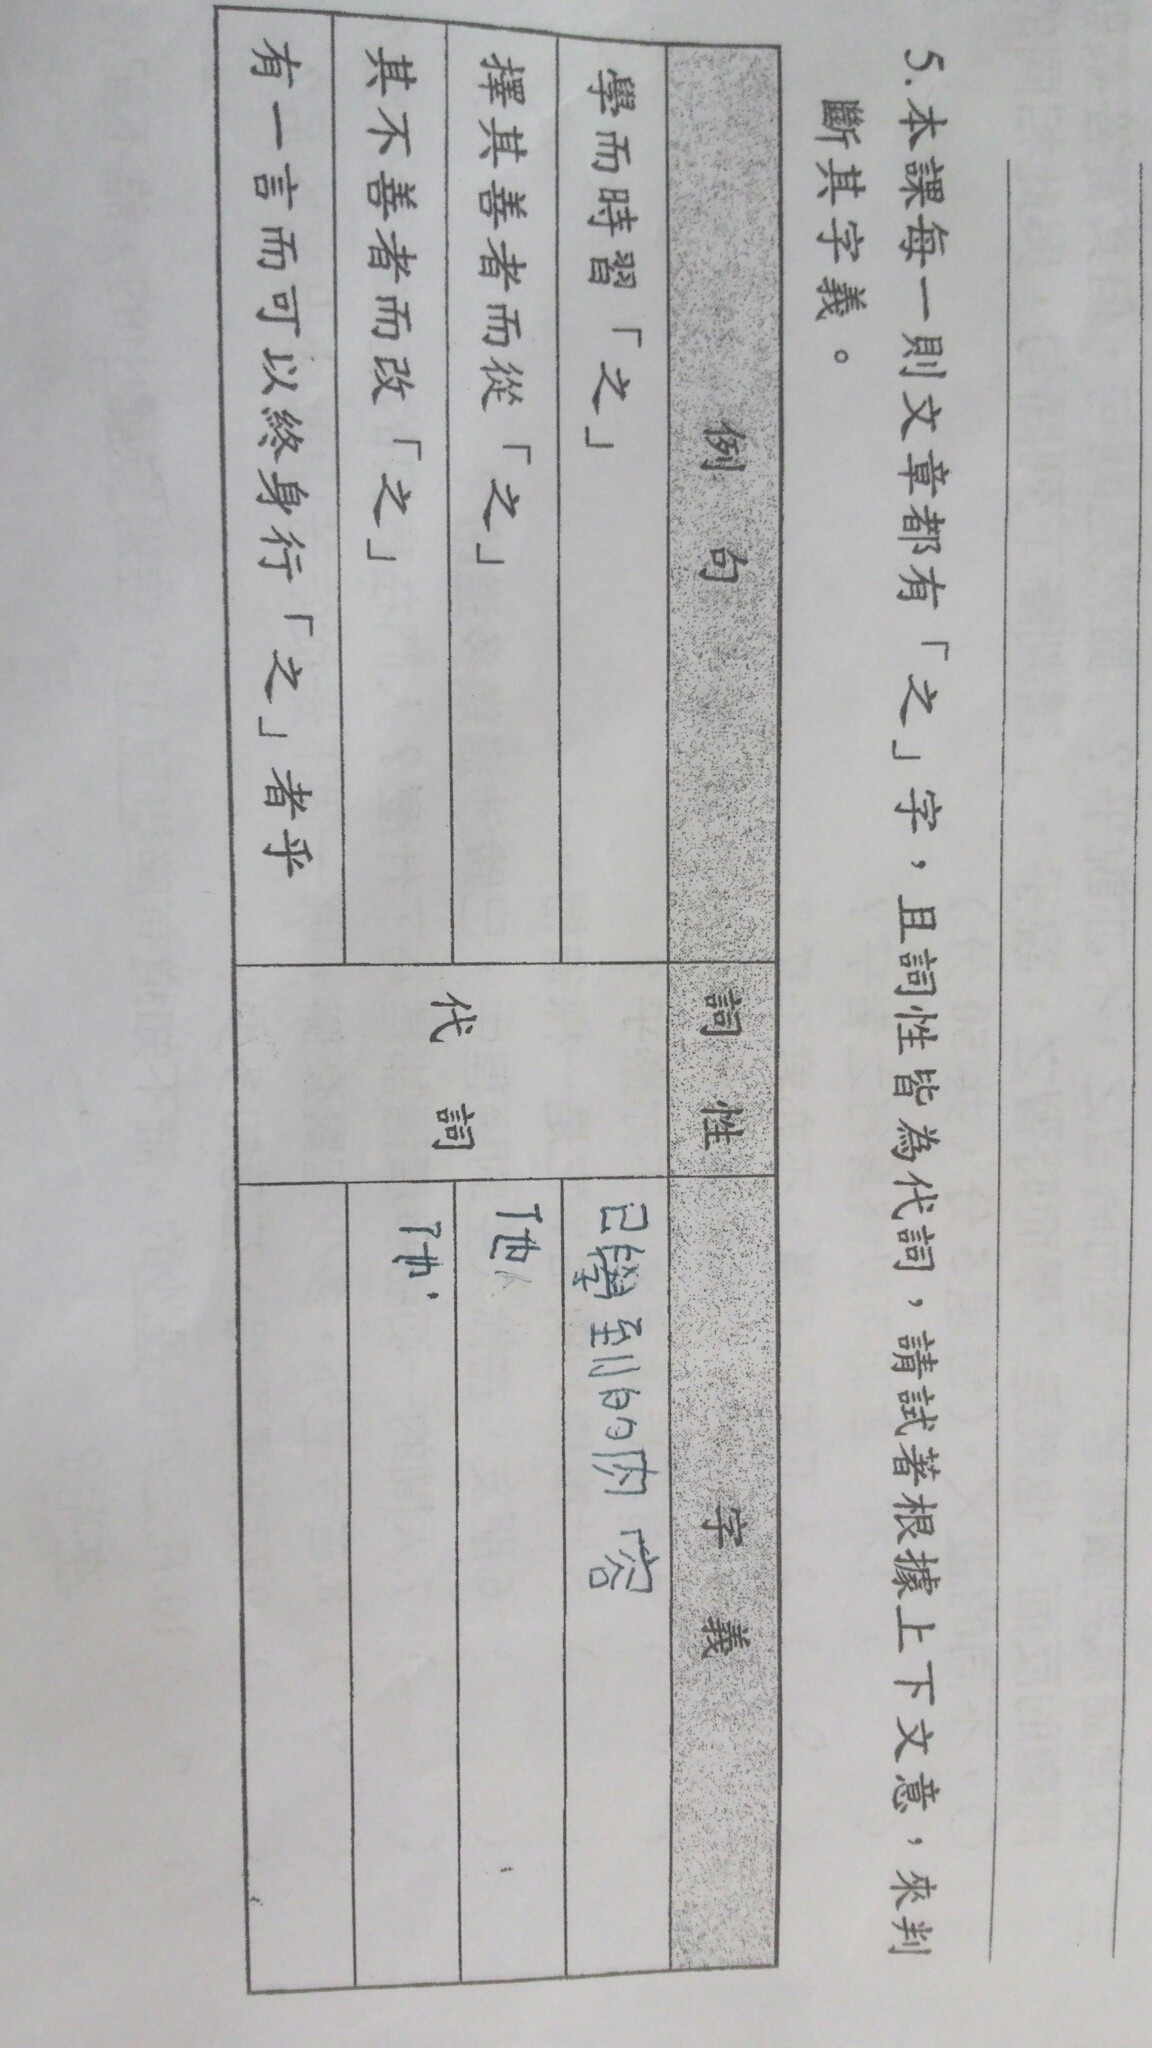 5.本課每一則文章都有「之」字，且詞性皆為代詞，請試著根據上下文意，來判
斷其字義。
例句 詞性 字義
學而時習「之」 代詞 已學到的內容
擇其善者而從「之」 他
其不善者而改「之」 他
有一言而可以終身行「之」者乎